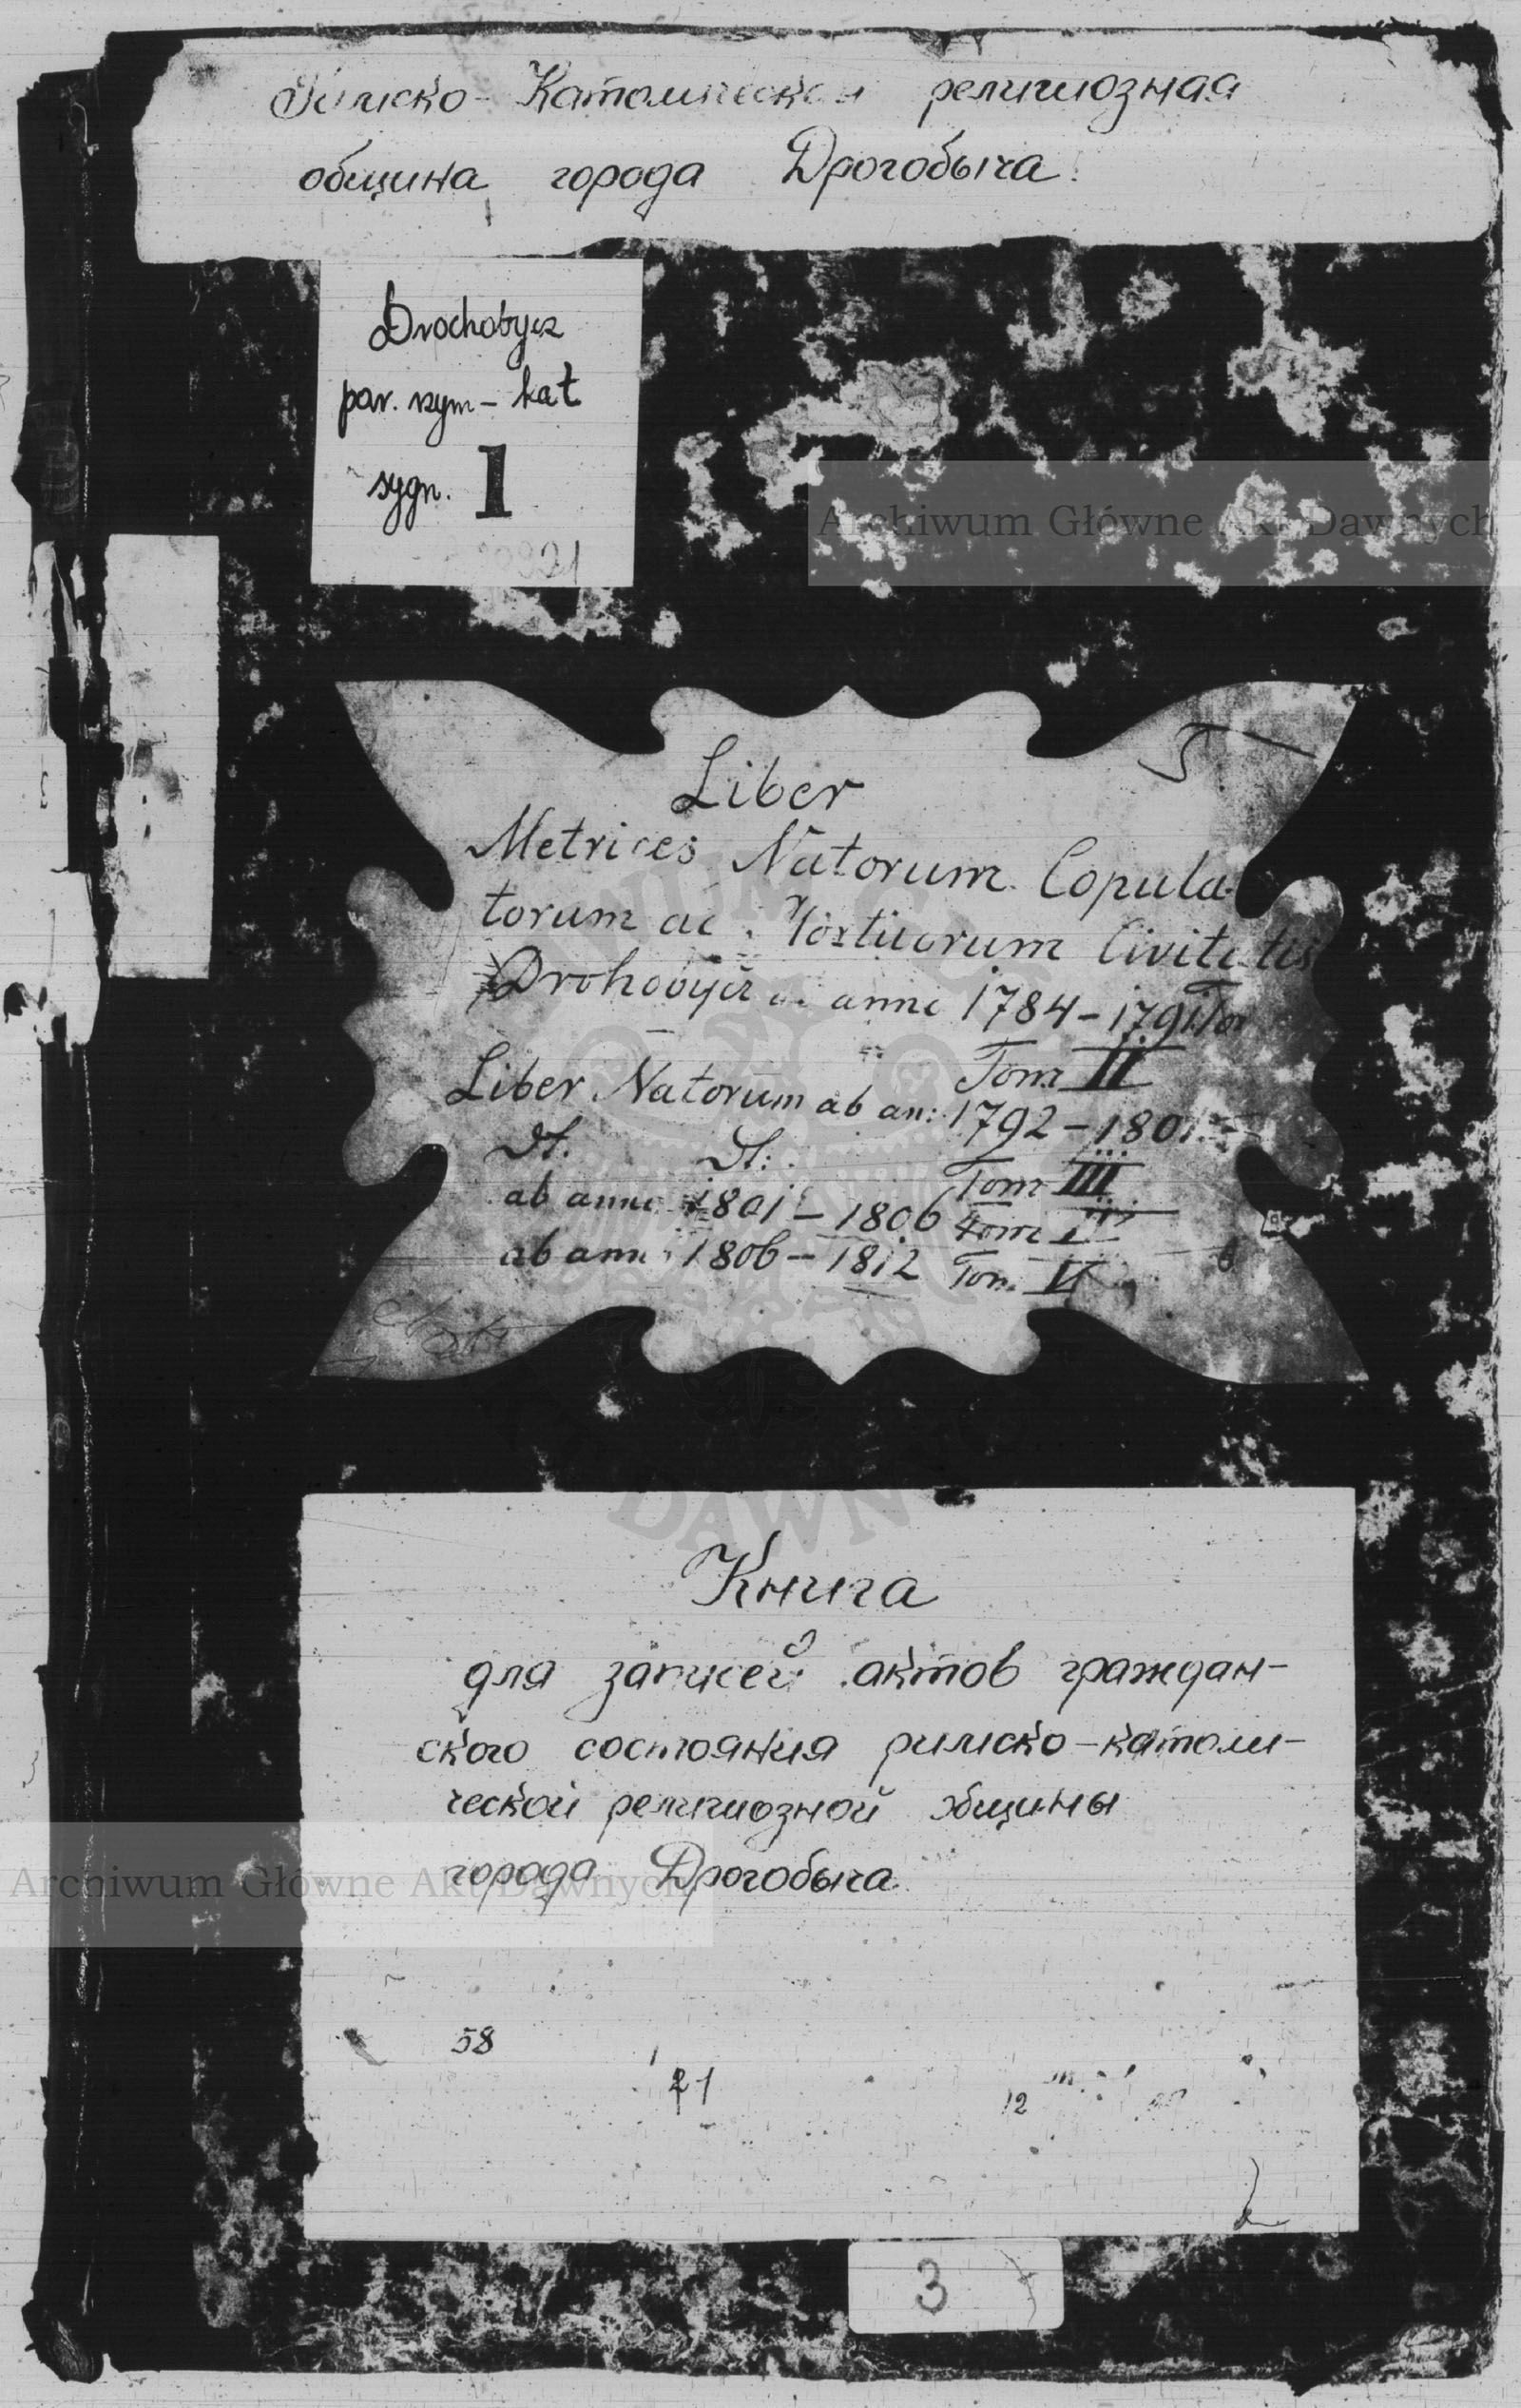 Римско-Католическая религиозная
община города Дрогобыча.
Drochobycz
par. rzym-kat
sygn. 1
Archiwum Główne Akt Dawnych
5
Liber
Metrices Natorum Copula-
torum ac Mortuorum Civitatis
Drohobycz anno 1784-1791
Tom II
Liber Natorum ab an: 1792-1801
Dt. Dt:
Tom III
ab anno 1801-1806 Tom
ab anno 1806-1812 Tom V
Книга
для записей актов граждан-
ского состояния римско-католи-
ческой религиозной общины
города Дрогобыча
Archiwum Główne Akt Dawnych
58
21
12
3